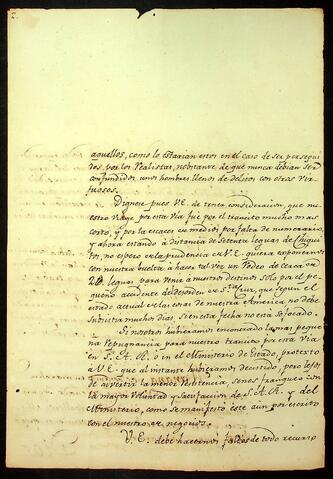 aquellos, como lo estarian estos en el caso de ser persegui
dos por los Realistas, nobstante de que nunca debian ser
confundidos unos hombres llenos de delitos con otros vir
tuosos.
Dignese pues V.E. de tener consideracion, que nu
estro viage por esta via fué por el transito mucho mas
corto, y por la escases en medios por falta de numerario,
y ahora estando á distancia de setenta leguas de Chiqui
tos, no espero en la prudencia de V.E. quiera exponernos
con nuestra buelta á hacer tal vez un rodeo de cerca
leguas para venir á nuestros destinos solo por el pe
queño accidente del desorden en Sta. Cruz, que segun el
estado actual de las cosas de nuestra America no debe
subsistir muchos dias, si en esta fecha no está sofocado.
Si nosotros hubieramos encontrado la mas peque
ña repugnancia para nuestro transito por esta via
en S.A.R. ó en el Ministerio de Estado, protesto
á V.E. que al instante hubieramos desistido; pero lejos
de advertir la menor resistencia, se nos franqueó con
la mayor voluntad y satisfaccion de S.A.R. y del
Ministerio, como se manifestó este aun por escrito
con el nuestro negocios.
V.E. debe hacernos faltos de todo recurso